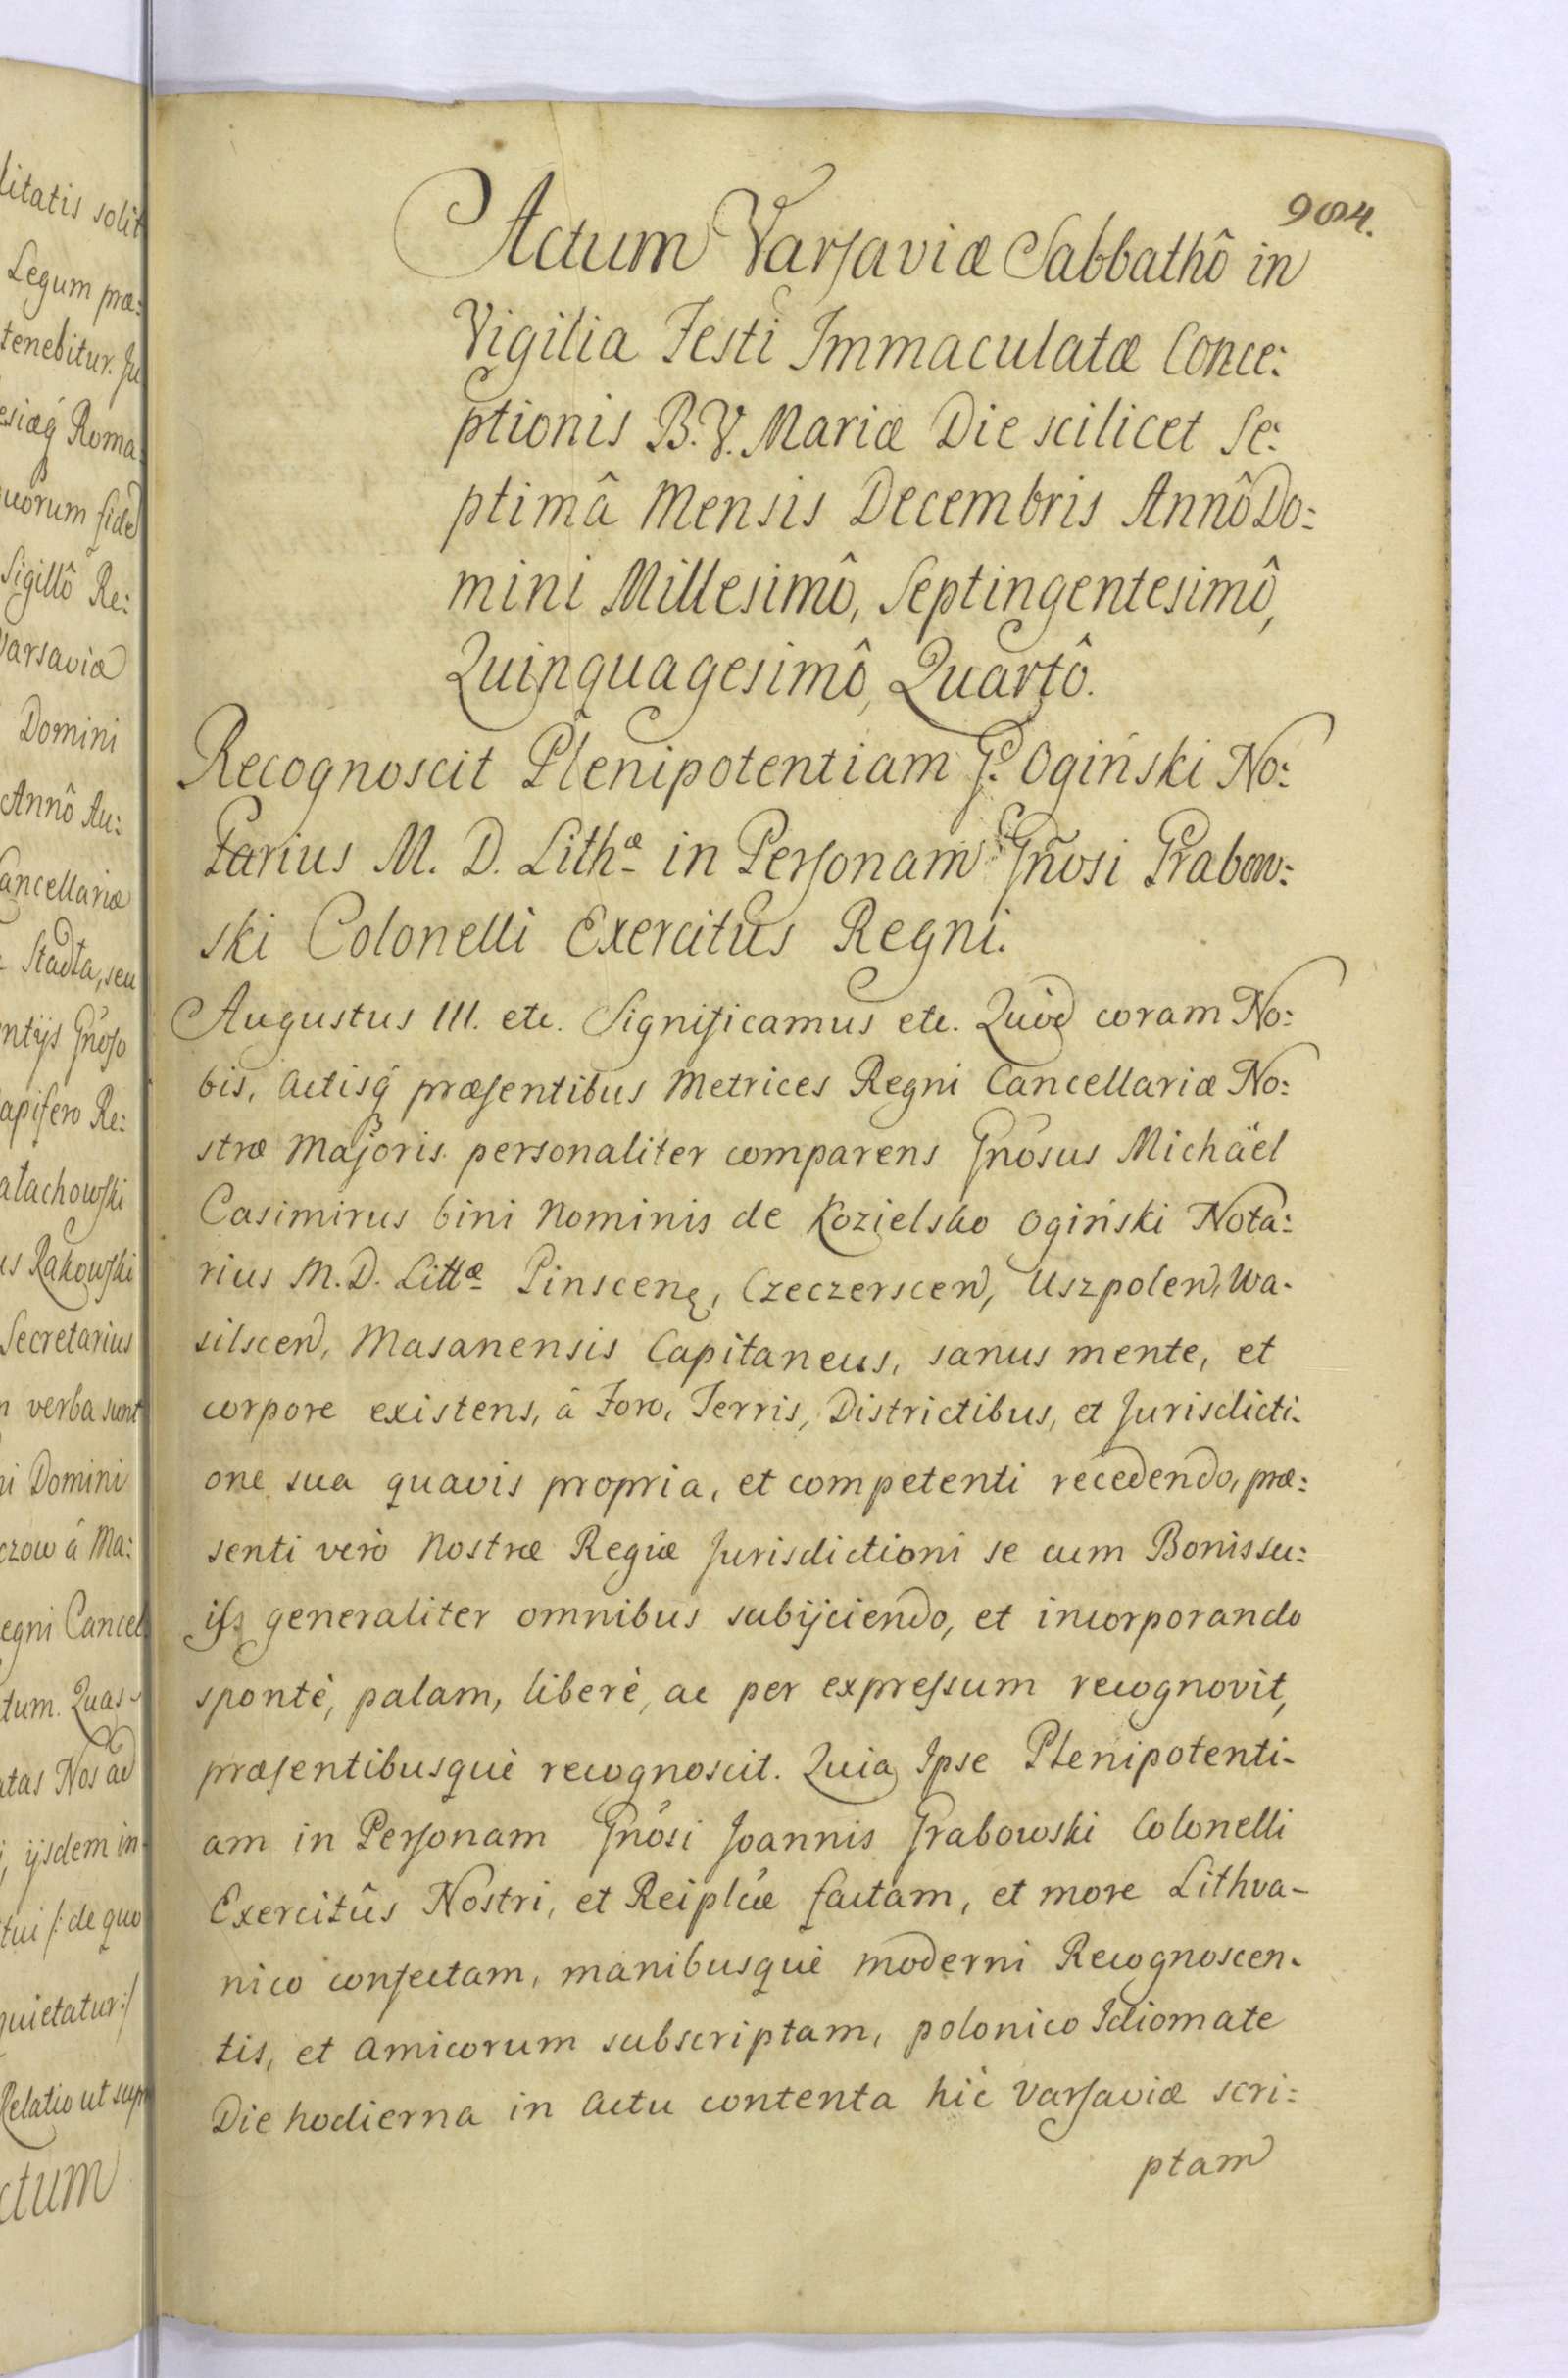 litatis solit
Legum præ:
tenebitur. Ju
esiæq́ Roma:
uorum fide
Sigillô Re:
Varsaviæ
Domini
Annô Au:
Cancellariæ
Stadła, seu
ntijs Gnoso
apifero Re:
ałachowski
us Rakowski
Secretarius
n verba sunt
ni Domini
czow á Ma:
egni Cancel
tum. Quas
atas Nos ad
ijsdem in
tui /: de quo
quietatur :/
Relatio ut supr
ctum
984.
Actum Varsaviæ Sabbathô in
Vigilia Festi Immaculatæ Conce:
ptionis B. V. Mariæ Die scilicet Se:
ptimâ Mensis Decembris Annô Do:
mini Millesimô, Septingentesimô,
Quinquagesimô, Quartô.
Recognoscit Plenipotentiam G. Ogiński No:
tarius M. D. Lithæ in Personam Gñosi Grabow:
ski Colonelli Exercitus Regni.
Augustus III. etc. Significamus etc. Quòd coram No:
bis, Actisq́ præsentibus Metrices Regni Cancellariæ No:
stræ Majoris personaliter comparens Gnosus Michäel
Casimirus bini Nominis de Kozielsko Ogiński Nota:
rius M. D. Littæ Pinscen, Czeczerscen, Uszpolen, Wa-
silscen, Masanensis Capitaneus, sanus mente, et
corpore existens, â Foro, Terris, Districtibus, et Jurisdicti-
one sua quavis propria, et competenti recedendo, præ:
senti verò Nostræ Regiæ Jurisdictioni se cum Bonis su:
iss generaliter omnibus subijciendo, et incorporando
spontè, palam, liberè, ac per expressum recognovit,
præsentibusquè recognoscit. Quia Ipse Plenipotenti-
am in Personam Gnosi Joannis Grabowski Colonelli
Exercitûs Nostri, et Reiplcæ factam, et more Lithva-
nico confectam, manibusquè moderni Recognoscen-
tis, et Amicorum subscriptam, polonico Idiomate
Die hodierna in Actu contenta hìc Varsaviæ scri:
ptam